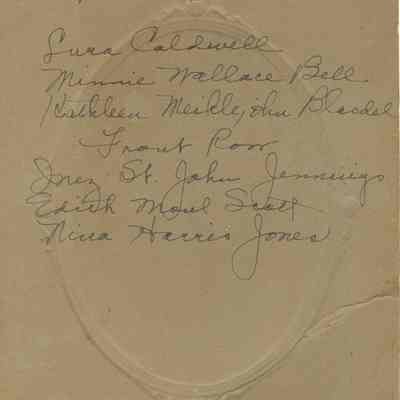 Sura Caldwell
Minnie Wallace Bell
Kathleen Meiklejohn Blaisdel
Front Row
Inez St. John Jennings
Edith Moul Scott
Nina Harris Jones